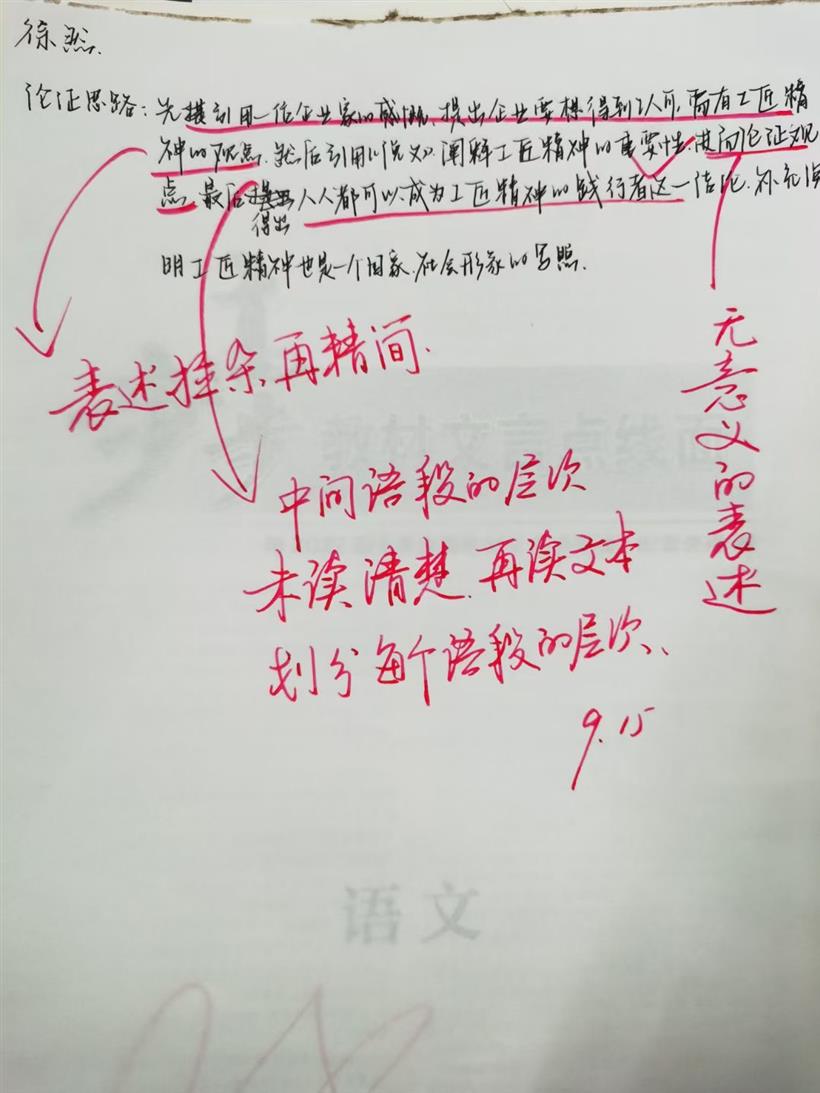 徐然.
论证思路:先引用一位企业家的感慨,提出企业要想得到认可,需有工匠精
神的观点.然后引用《说文》阐释工匠精神的重要性.共同论证观
点.最后得出人人都可以成为工匠精神的践行者这一结论.补充说
明工匠精神也是一个国家、社会形象的写照.
表述拉杂,再精简.
中间语段的层次
未读清楚.再读文本
划分每个语段的层次、
9.15
无意义的表述
教材文言点线面
语文